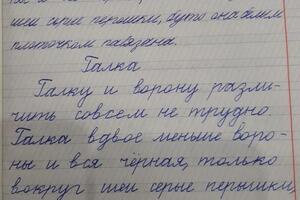 шеи серые перошки, буто она белым
платочком павязана.
Галка
Галку и ворону разли-
чить совсем не трудно.
Галка вдвое меньше воро-
ны и вся чёрная, только
вокруг шеи серые перышки